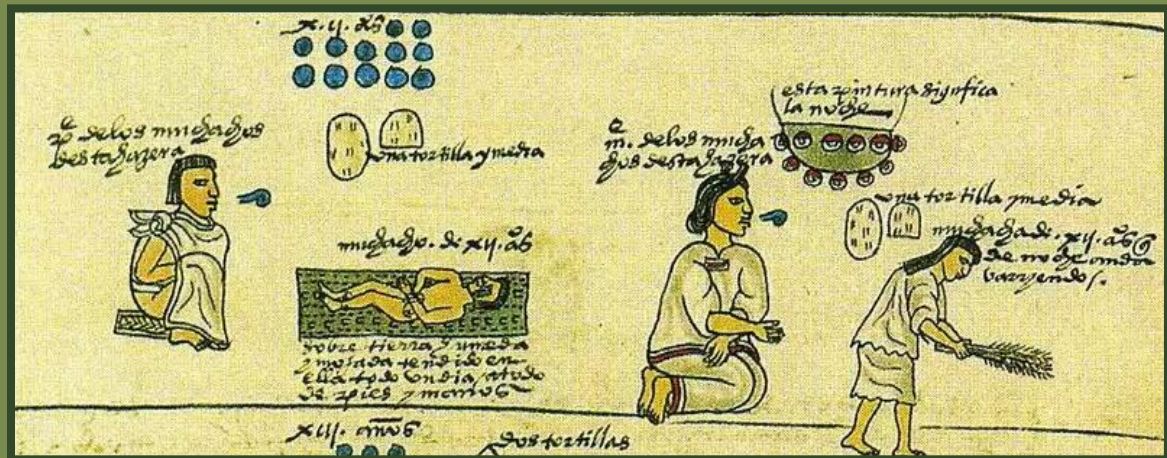 x.ij. años
una tortilla y media
p.e de los muchachos
desta hazera
muchacho. de xij. años
sobre tierra y umeda
y mojada tendido en
ella todo un dia / atado
de pies y manos
esta pintura significa
la noche
m.e de los mucha
chos desta hazera
una tortilla y media
muchacha de. xij. años q̄
de noche anda
barriendo.
xiij. años
dos tortillas